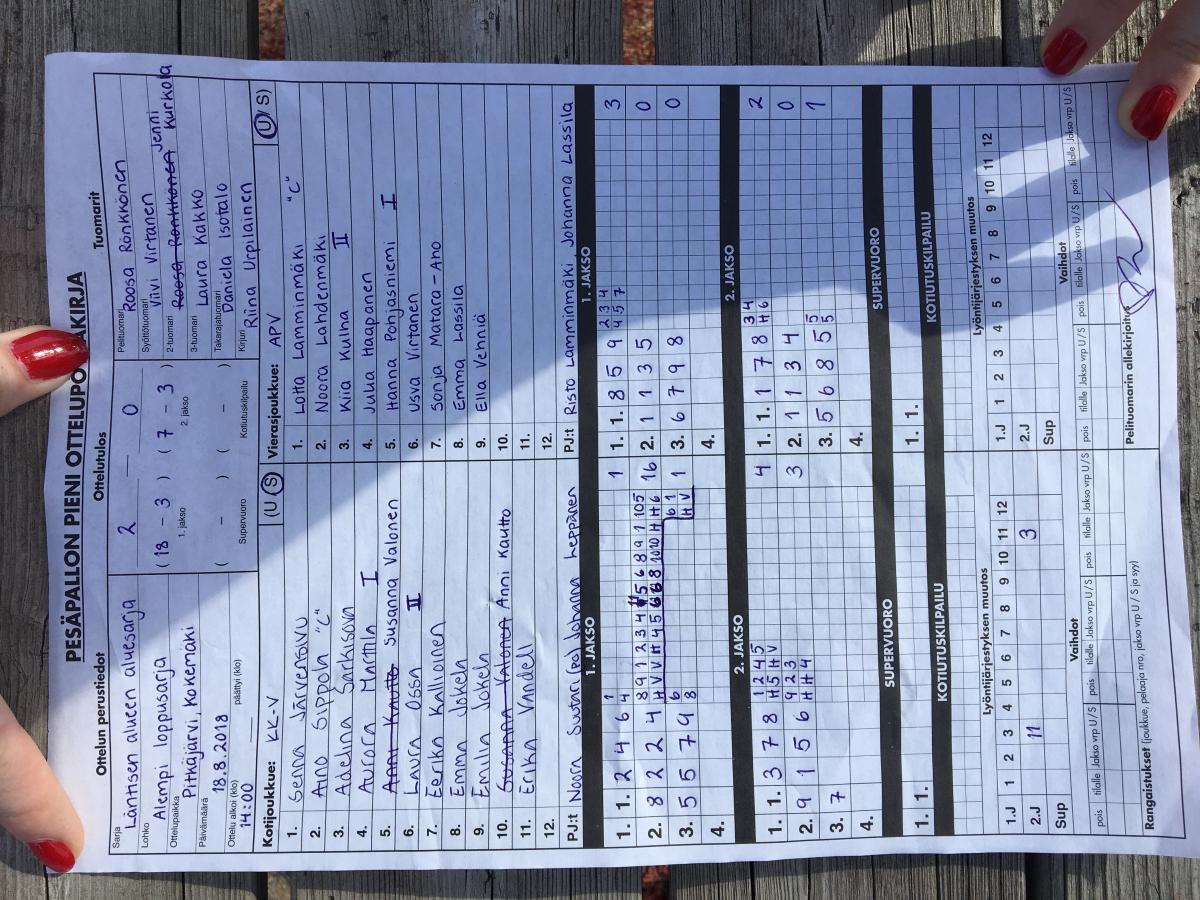 PESÄPALLON PIENI OTTELUPÖYTÄKIRJA
Ottelun perustiedot
Sarja
Läntisen alueen aluesarja
Lohko
Alempi loppusarja
Ottelupaikka
Pitkäjärvi, Kokemäki
Päivämäärä
18.8.2018
Ottelu alkoi (klo)
14:00
päättyi (klo)
Ottelutulos
2 — 0
( 18 - 3 ) ( 7 - 3 )
1. jakso 2. jakso
( - ) ( - )
Supervuoro Kotiutuskilpailu
Tuomarit
Pelituomari Roosa Rönkkönen
Syöttötuomari Viivi Virtanen
2-tuomari Roosa Rönkkönen Jenni Kurkola
3-tuomari Laura Kakko
Takarajatuomari Daniela Isotalo
Kirjuri Riina Urpilainen
Kotijoukkue: KK-V (U / S)
1. Senna Järvensivu
2. Aino Sippola "C"
3. Adelina Sarkisova
4. Aurora Marttila I
5. Anni Kautto Susanna Valonen
6. Laura Ossa II
7. Eerika Kallioinen
8. Emma Jokela
9. Emilia Jokela
10. Susanna Valonen Anni Kautto
11. Erika Vandell
12.
PJ:t Noora Suutari (po) Johanna Leppänen
Vierasjoukkue: APV (U / S)
1. Lotta Lamminmäki "C"
2. Noora Lahdenmäki
3. Kiia Kulha II
4. Julia Haapanen
5. Hanna Pohjasniemi I
6. Usva Virtanen
7. Sonja Matara-Aho
8. Emma Lassila
9. Ella Vehniä
10.
11.
12.
PJ:t Risto Lamminmäki Johanna Lassila
1. JAKSO
1. 1. 2 4 6 1 4 1
2. 8 2 2 4 16
3. 5 5 7 9 6 8 1
4.
1. JAKSO
1. 1. 8 5 9 2 3 4 3
4 5 7
2. 1 1 3 5 0
3. 6 7 9 8 0
4.
2. JAKSO
1. 1. 3 7 8 1 2 4 5 4
H 5 H V
2. 9 1 5 6 9 2 3 3
H H 4
3. 7
4.
2. JAKSO
1. 1. 1 7 8 3 4 2
H 6
2. 1 1 3 4 0
3. 5 6 8 5 5 1
5
4.
SUPERVUORO
1. 1.
SUPERVUORO
1. 1.
KOTIUTUSKILPAILU
KOTIUTUSKILPAILU
Lyöntijärjestyksen muutos
1.J 1 2 3 4 5 6 7 8 9 10 11 12
2.J 11 3
Sup
Lyöntijärjestyksen muutos
1.J 1 2 3 4 5 6 7 8 9 10 11 12
2.J
Sup
Vaihdot
pois tilalle Jakso vrp U/S pois tilalle Jakso vrp U/S pois tilalle Jakso vrp U/S
Vaihdot
pois tilalle Jakso vrp U/S pois tilalle Jakso vrp U/S pois tilalle Jakso vrp U/S
Rangaistukset (joukkue, pelaaja nro, jakso vrp U / S ja syy)
Pelituomarin allekirjoitus